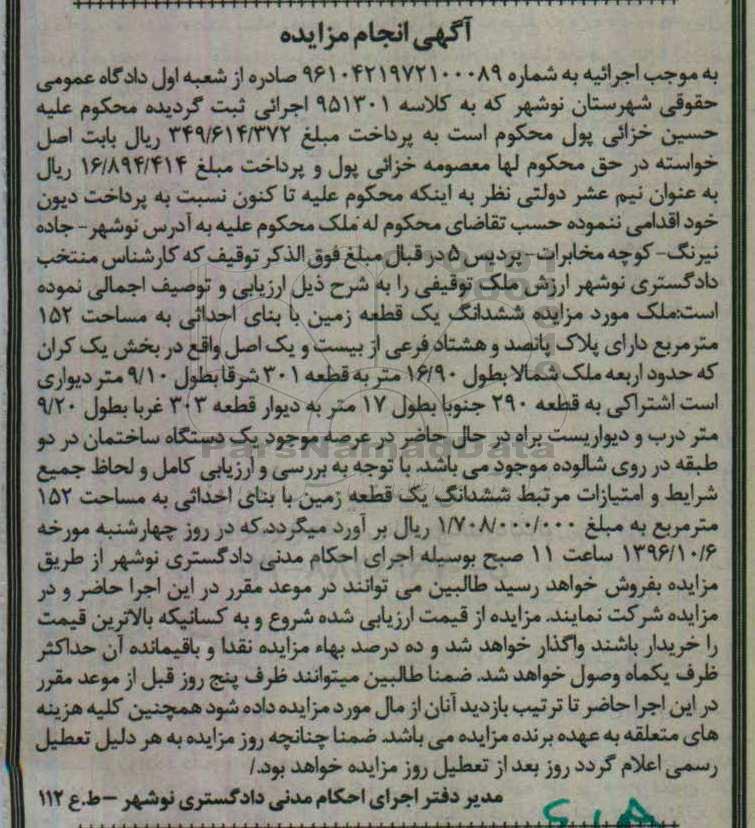 آگهی انجام مزایده
به موجب اجرائیه به شماره ۹۶۱۰۴۲۱۹۷۲۱۰۰۰۸۹ صادره از شعبه اول دادگاه عمومی
حقوقی شهرستان نوشهر که به کلاسه ۹۵۱۳۰۱ اجرائی ثبت گردیده محکوم علیه
حسین خزائی پول محکوم است به پرداخت مبلغ ۳۴۹/۶۱۴/۳۷۲ ریال بابت اصل
خواسته در حق محکوم لها معصومه خزائی پول و پرداخت مبلغ ۱۶/۸۹۴/۴۱۴ ریال
به عنوان نیم عشر دولتی نظر به اینکه محکوم علیه تا کنون نسبت به پرداخت دیون
خود اقدامی ننموده حسب تقاضای محکوم له ملک محکوم علیه به آدرس نوشهر- جاده
نیرنگ- کوچه مخابرات- پردیس ۵ در قبال مبلغ فوق الذکر توقیف که کارشناس منتخب
دادگستری نوشهر ارزش ملک توقیفی را به شرح ذیل ارزیابی و توصیف اجمالی نموده
است:ملک مورد مزایده ششدانگ یک قطعه زمین با بنای احداثی به مساحت ۱۵۲
مترمربع دارای پلاک پانصد و هشتاد فرعی از بیست و یک اصل واقع در بخش یک کران
که حدود اربعه ملک شمالا بطول ۱۶/۹۰ متر به قطعه ۳۰۱ شرقا بطول ۹/۱۰ متر دیواری
است اشتراکی به قطعه ۲۹۰ جنوبا بطول ۱۷ متر به دیوار قطعه ۳۰۳ غربا بطول ۹/۲۰
متر درب و دیواریست براه در حال حاضر در عرصه موجود یک دستگاه ساختمان در دو
طبقه در روی شالوده موجود می باشد. با توجه به بررسی و ارزیابی کامل و لحاظ جمیع
شرایط و امتیازات مرتبط ششدانگ یک قطعه زمین با بنای احداثی به مساحت ۱۵۲
مترمربع به مبلغ ۱/۷۰۸/۰۰۰/۰۰۰ ریال بر آورد میگردد.که در روز چهارشنبه مورخه
۱۳۹۶/۱۰/۶ ساعت ۱۱ صبح بوسیله اجرای احکام مدنی دادگستری نوشهر از طریق
مزایده بفروش خواهد رسید طالبین می توانند در موعد مقرر در این اجرا حاضر و در
مزایده شرکت نمایند. مزایده از قیمت ارزیابی شده شروع و به کسانیکه بالاترین قیمت
را خریدار باشند واگذار خواهد شد و ده درصد بهاء مزایده نقدا و باقیمانده آن حداکثر
ظرف یکماه وصول خواهد شد. ضمنا طالبین میتوانند ظرف پنج روز قبل از موعد مقرر
در این اجرا حاضر تا ترتیب بازدید آنان از مال مورد مزایده داده شود همچنین کلیه هزینه
های متعلقه به عهده برنده مزایده می باشد. ضمنا چنانچه روز مزایده به هر دلیل تعطیل
رسمی اعلام گردد روز بعد از تعطیل روز مزایده خواهد بود./
مدیر دفتر اجرای احکام مدنی دادگستری نوشهر –ط.ع ۱۱۲
ParsNamadData